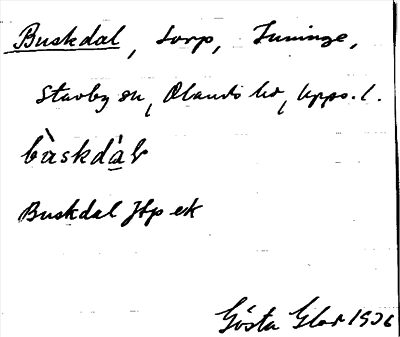 Buskdal, torp, Tuninge,
Stavby sn, Olands hd, Upps. l.
bàskdàl
Buskdal Jbp ek
Gösta Glar 1936